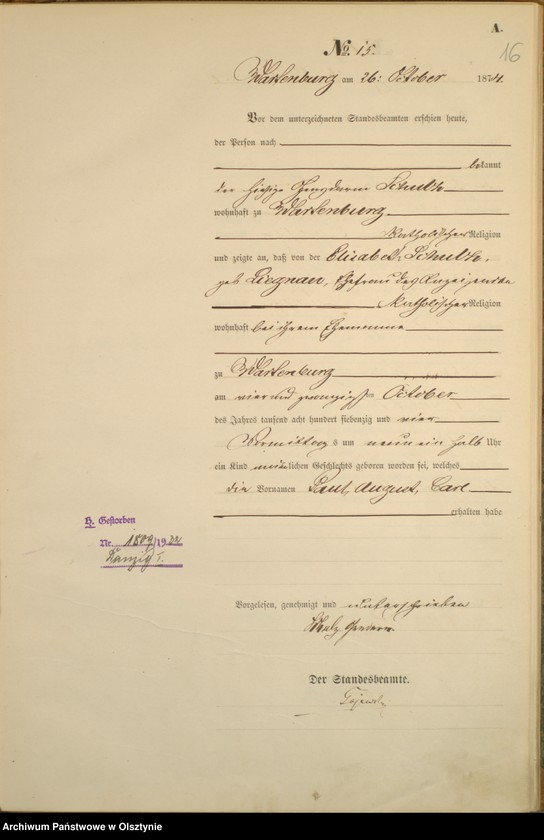 A.
16
No. 15.
Wartenburg am 26: October 1874.
Vor dem unterzeichneten Standesbeamten erschien heute,
der Person nach
bekannt
der hiesige Gensdarm Schultz
wohnhaft zu Wartenburg
katholischer Religion
und zeigte an, daß von der Elisabeth Schultz,
geb Liegnau, Ehefrau des Anzeigenden
katholischer Religion
wohnhaft bei ihrem Ehemanne
zu Wartenburg
am vier und zwanzigsten October
des Jahres tausend acht hundert siebenzig und vier
Vormittags um neun ein halb Uhr
ein Kind männlichen Geschlechts geboren worden sei, welches
die Vornamen Paul, August, Carl
erhalten habe
H. Gestorben
Nr. 1809/1922
Danzig I.
Vorgelesen, genehmigt und unterschrieben
Schultz Gensdarm
Der Standesbeamte.
Archiwum Państwowe w Olsztynie